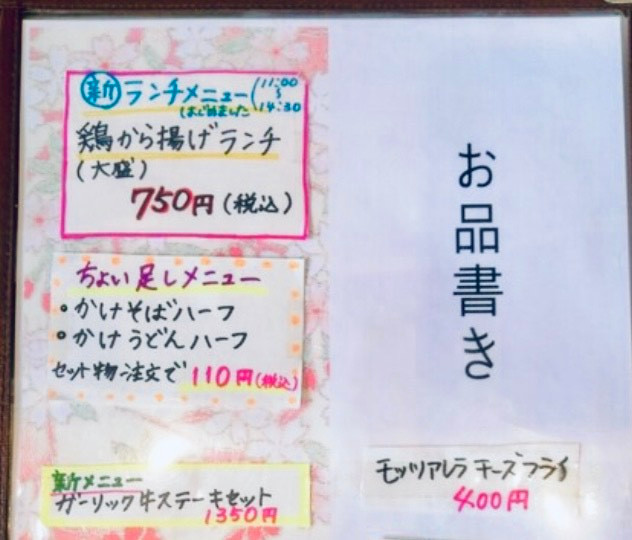 新ランチメニュー(11:00
〜
14:30
はじめました
鶏から揚げランチ
(大盛)
750円(税込)
ちょい足しメニュー
・かけそばハーフ
・かけうどんハーフ
セット物ご注文で110円(税込)
新メニュー
ガーリック牛ステーキセット
1350円
お品書き
モッツアレラチーズフライ
400円